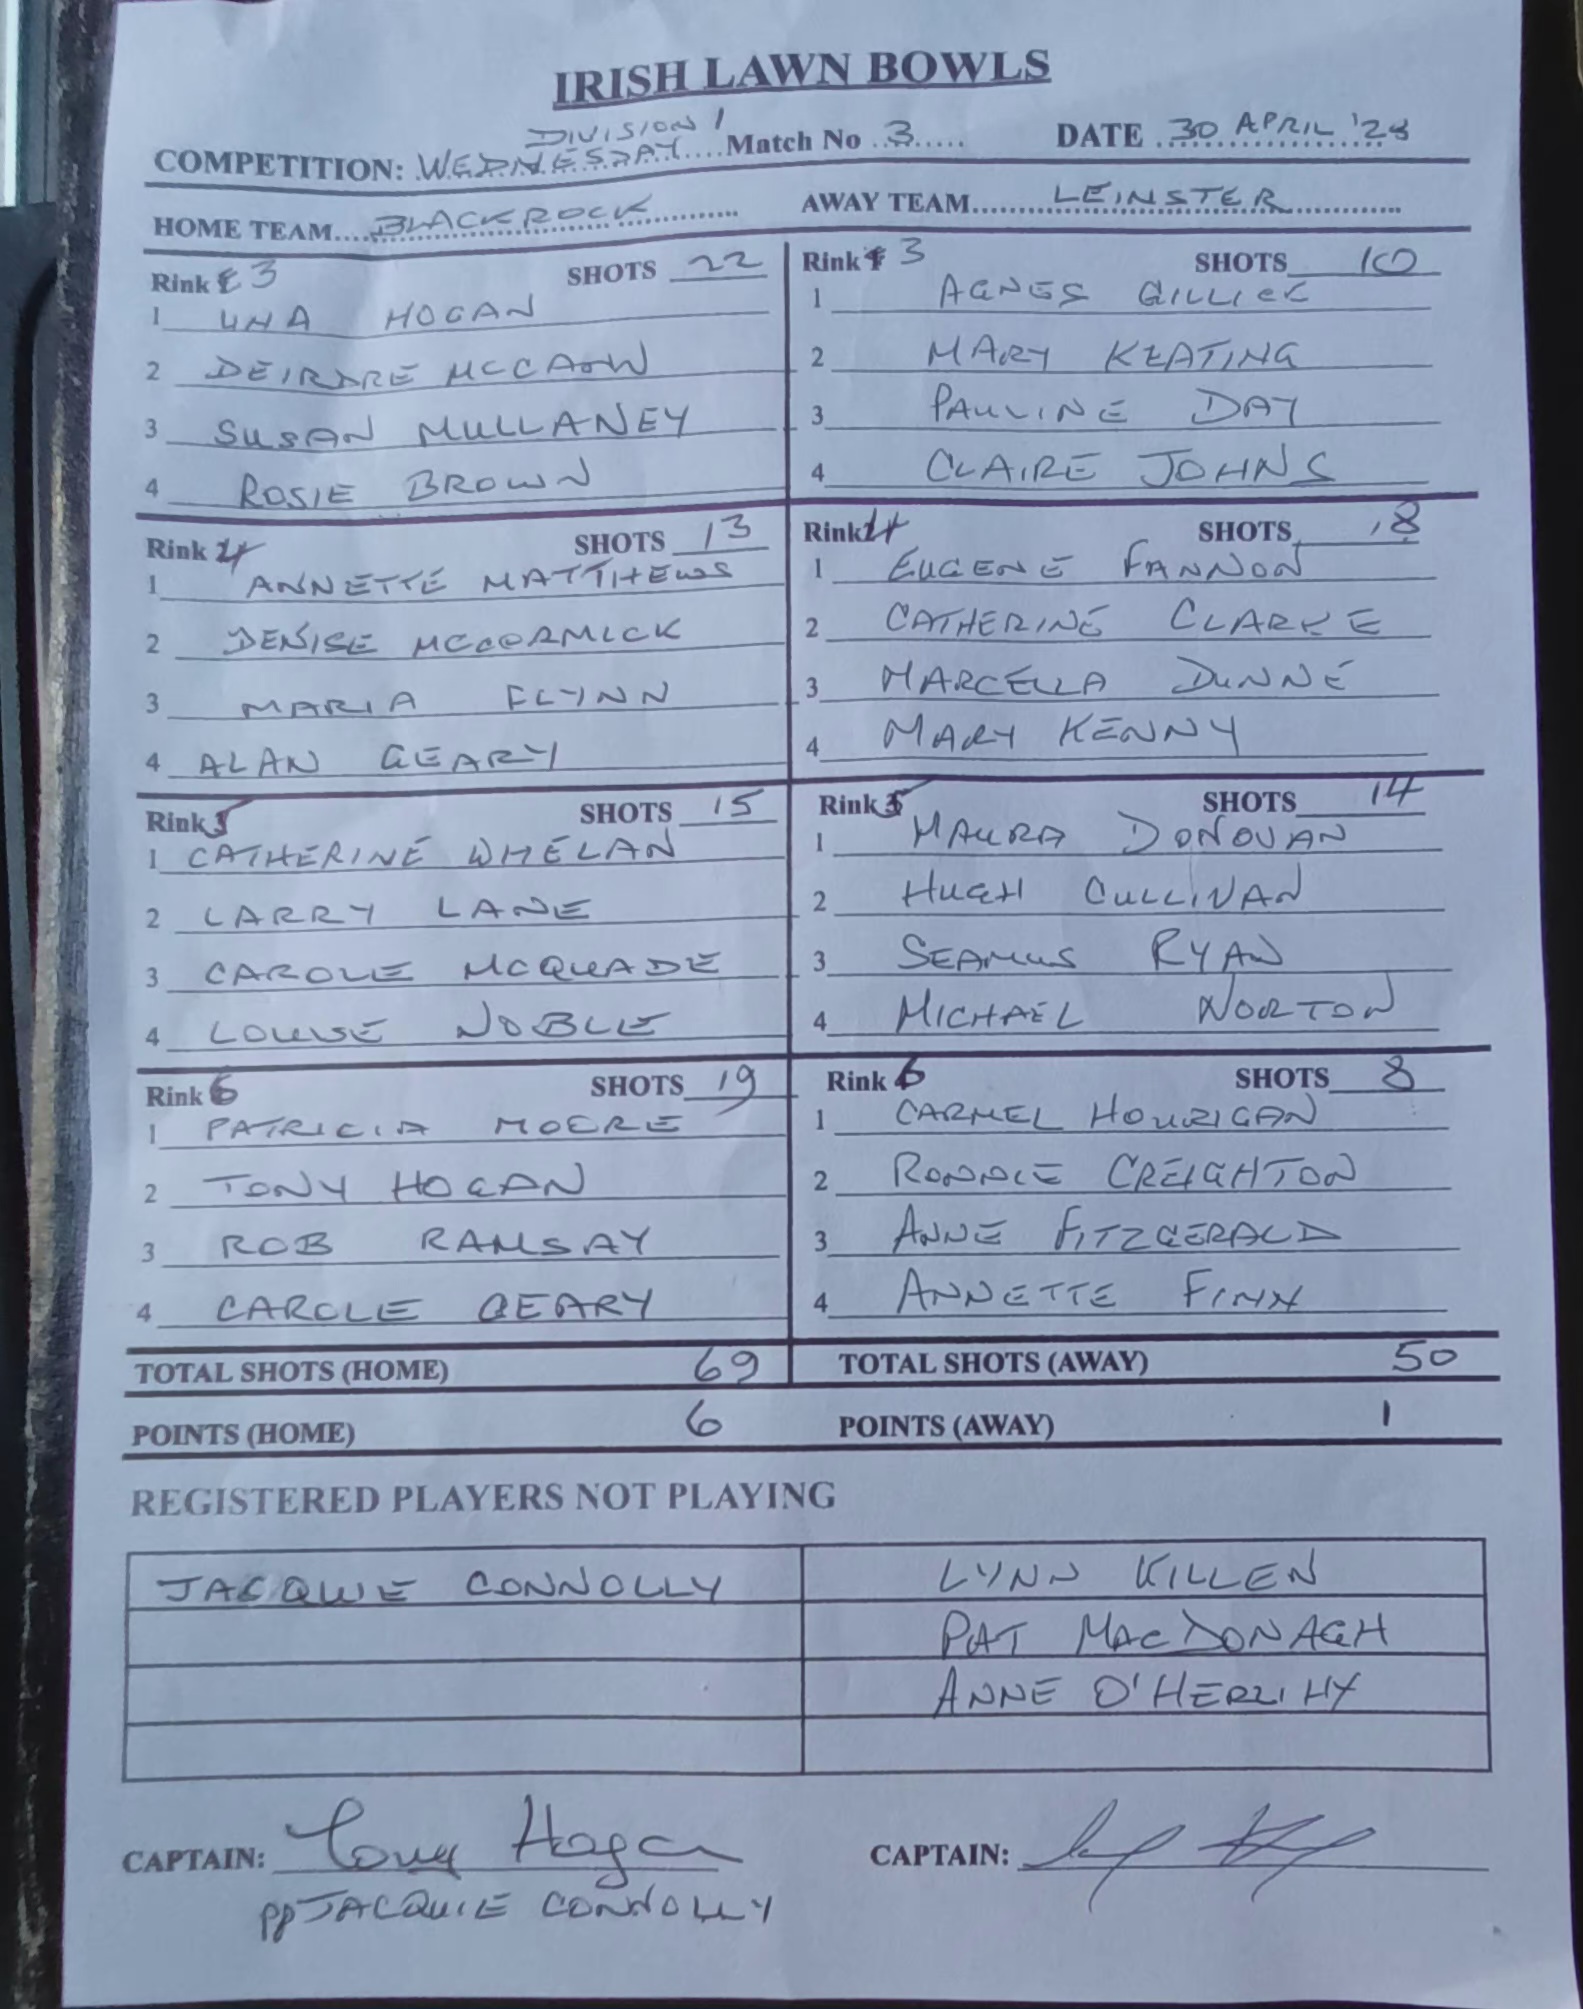 IRISH LAWN BOWLS
DIVISION 1
COMPETITION: WEDNESDAY Match No 3 DATE 30 APRIL '25
HOME TEAM BLACKROCK AWAY TEAM LEINSTER
Rink 3 SHOTS 22
1 UNA HOGAN
2 DEIRDRE MCCAOW
3 SUSAN MULLANEY
4 ROSIE BROWN
Rink 3 SHOTS 10
1 AGNES GILLICK
2 MARY KEATING
3 PAULINE DAY
4 CLAIRE JOHNS
Rink 4 SHOTS 13
1 ANNETTE MATTHEWS
2 DENISE MCCORMICK
3 MARIA FLYNN
4 ALAN GEARY
Rink 4 SHOTS 18
1 EUGENE FANNON
2 CATHERINE CLARKE
3 MARCELLA DUNNE
4 MARY KENNY
Rink 5 SHOTS 15
1 CATHERINE WHELAN
2 LARRY LANE
3 CAROLE MCQUADE
4 LOUISE NOBLE
Rink 5 SHOTS 14
1 MAURA DONOVAN
2 HUGH CULLIVAN
3 SEAMUS RYAN
4 MICHAEL NORTON
Rink 6 SHOTS 19
1 PATRICIA MOORE
2 TONY HOGAN
3 ROB RAMSAY
4 CAROLE GEARY
Rink 6 SHOTS 8
1 CARMEL HOURIGAN
2 RONNIE CREIGHTON
3 ANNE FITZGERALD
4 ANNETTE FINN
TOTAL SHOTS (HOME) 69 TOTAL SHOTS (AWAY) 50
POINTS (HOME) 6 POINTS (AWAY) 1
REGISTERED PLAYERS NOT PLAYING
JACQUIE CONNOLLY LYNN KILLEN
PAT MACDONAGH
ANNE O'HERLIHY
CAPTAIN: Tony Hogan CAPTAIN:
pp JACQUIE CONNOLLY